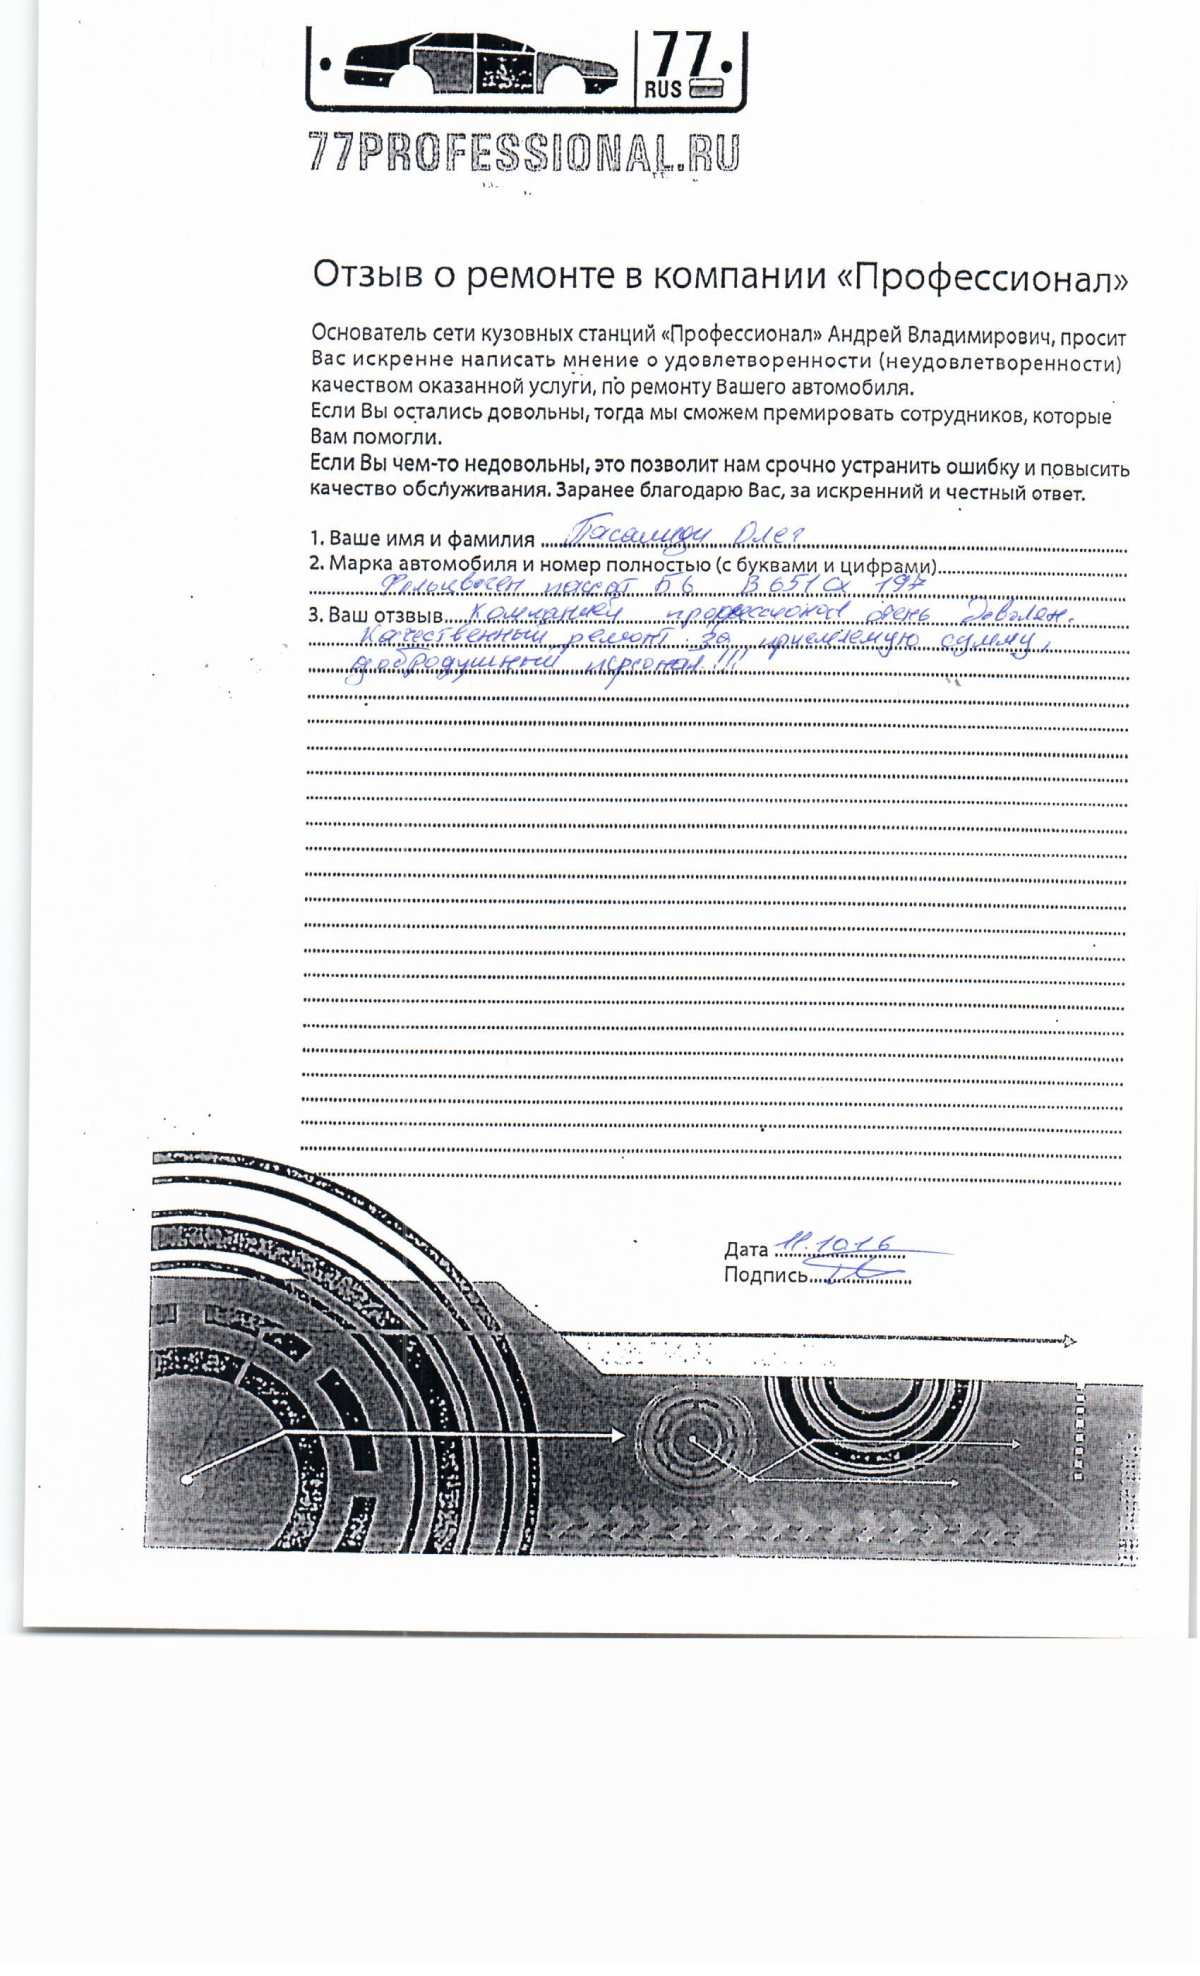 77
RUS
77PROFESSIONAL.RU
Отзыв о ремонте в компании «Профессионал»
Основатель сети кузовных станций «Профессионал» Андрей Владимирович, просит
Вас искренне написать мнение о удовлетворенности (неудовлетворенности)
качеством оказанной услуги, по ремонту Вашего автомобиля.
Если Вы остались довольны, тогда мы сможем премировать сотрудников, которые
Вам помогли.
Если Вы чем-то недовольны, это позволит нам срочно устранить ошибку и повысить
качество обслуживания. Заранее благодарю Вас, за искренний и честный ответ.
1. Ваше имя и фамилия Олег
2. Марка автомобиля и номер полностью (с буквами и цифрами)
Фольцваген пассат Б6 В 651 197
3. Ваш отзвыв Компанией профессионал очень доволен.
Качественный ремонт за приемлемую сумму,
добродушный персонал!!!
Дата 11.10.16
Подпись